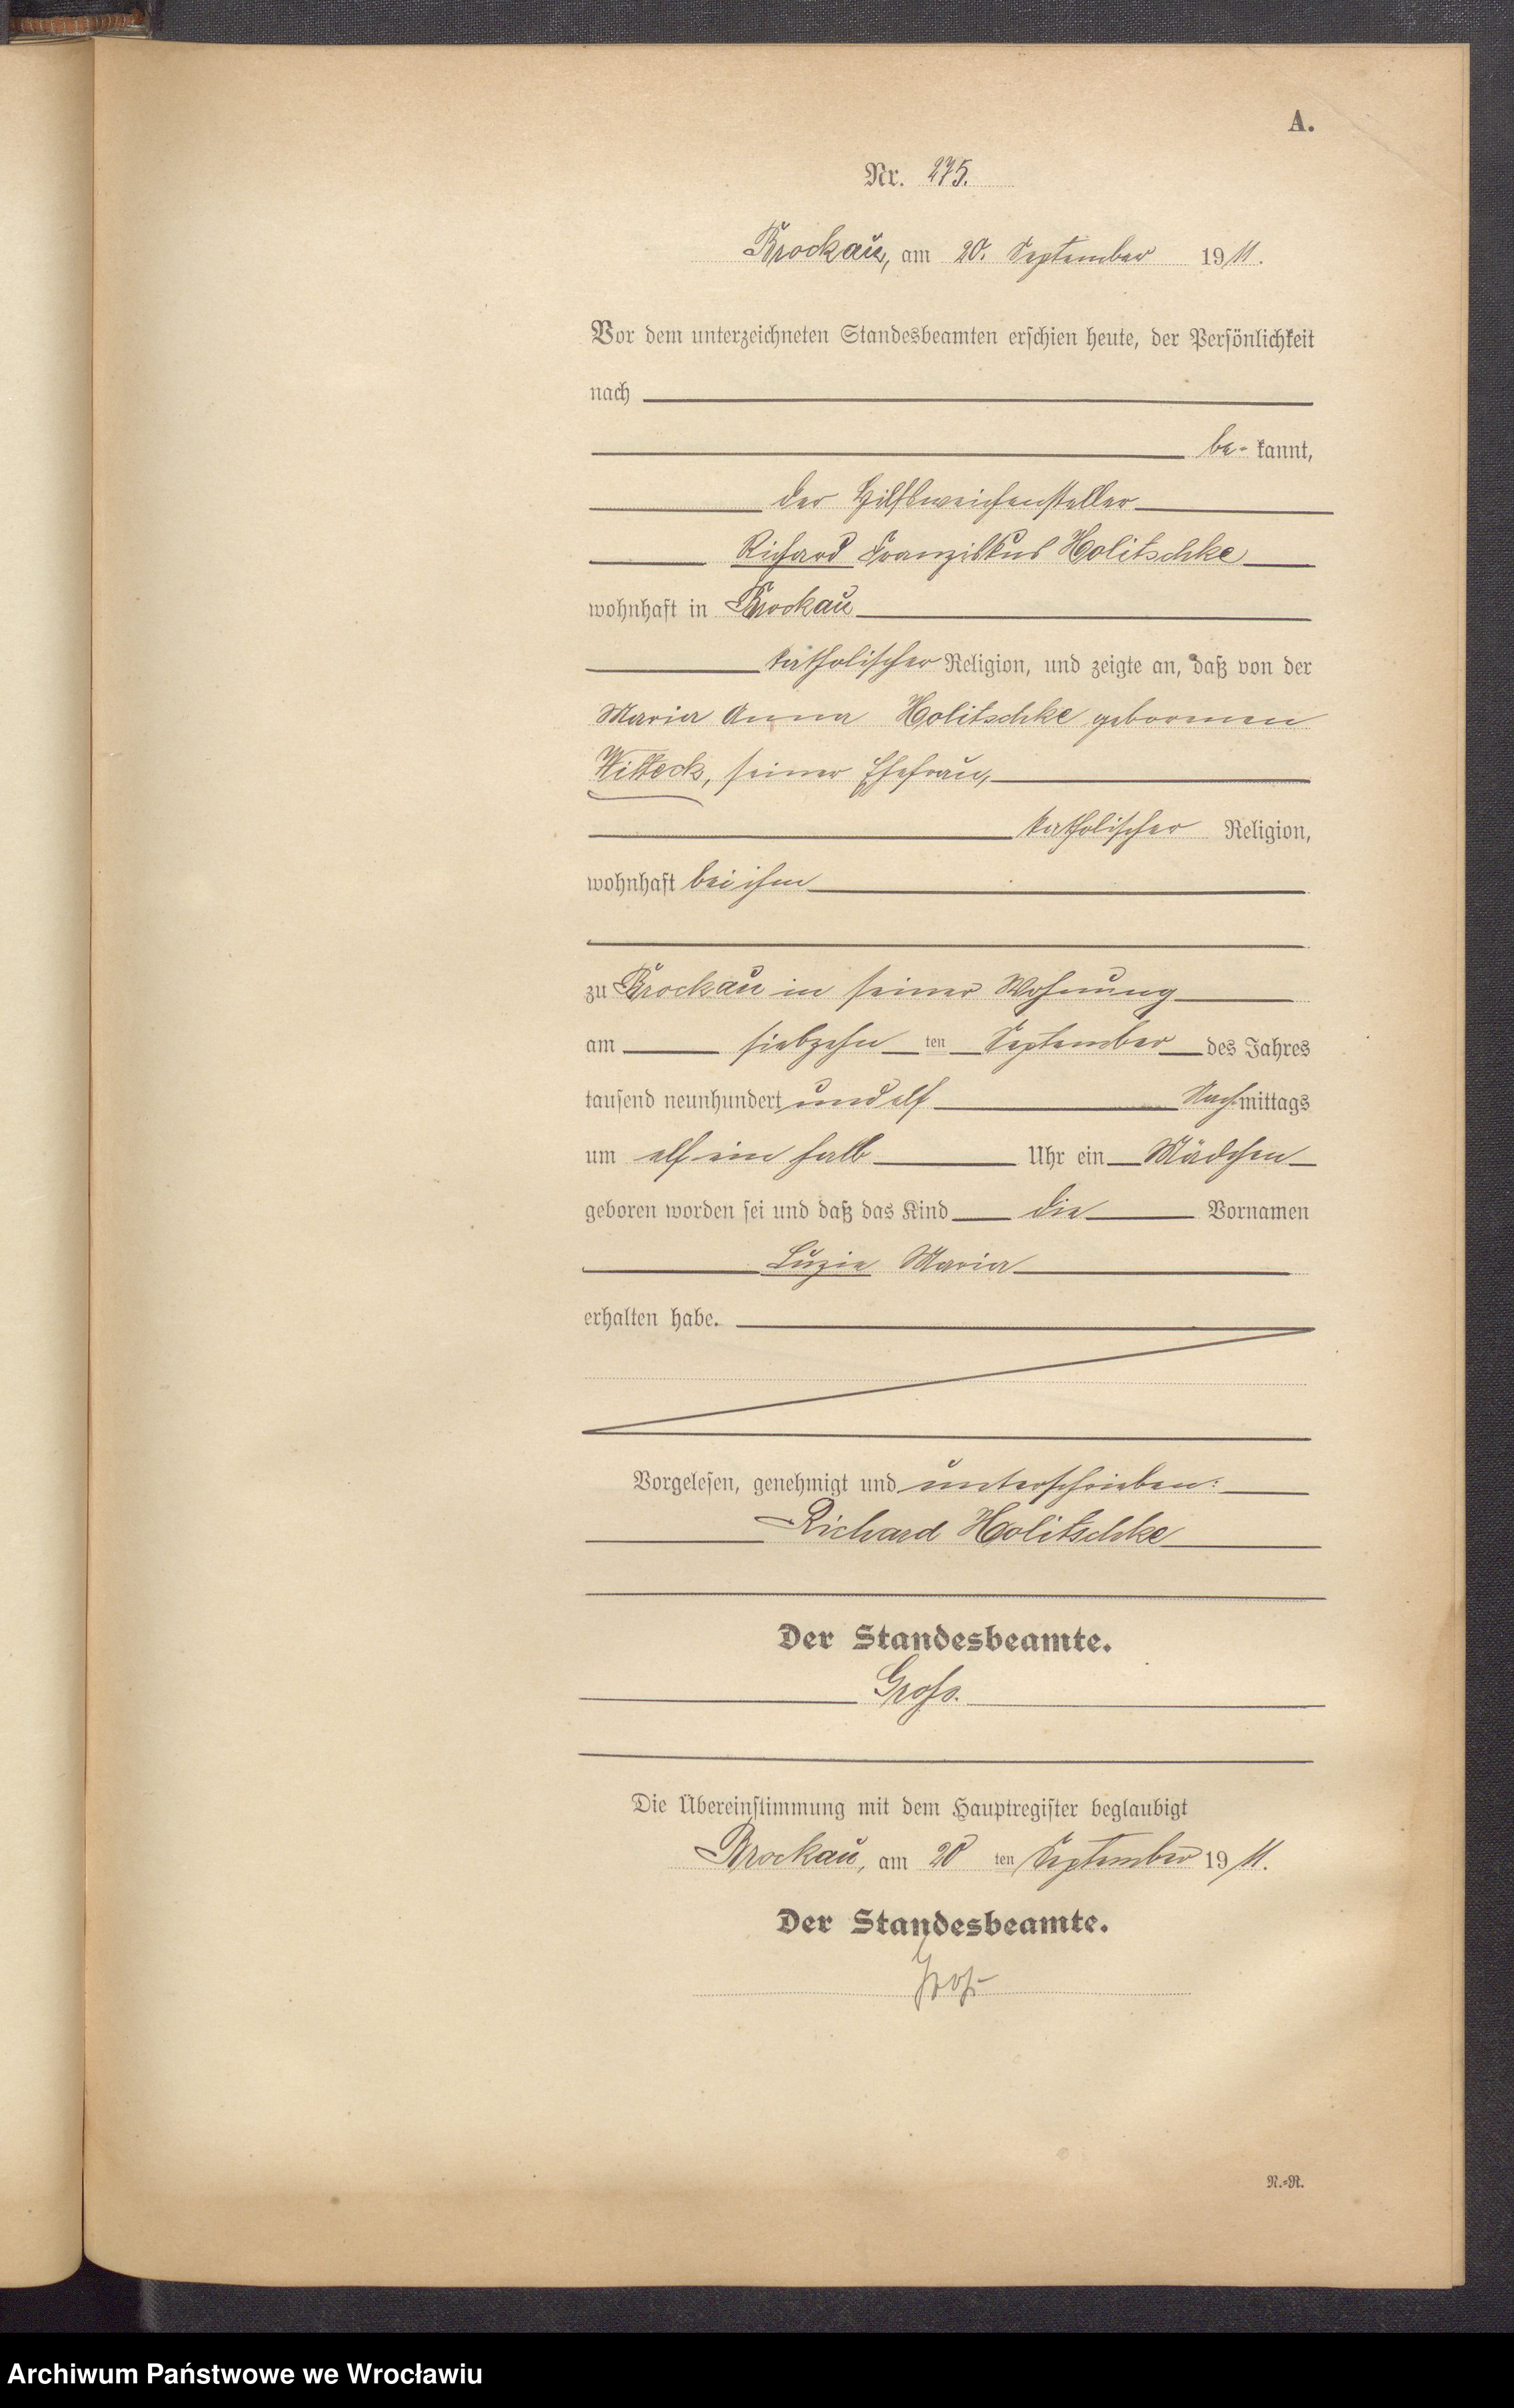 A.
Nr. 275.
Brockau, am 20. September 1911.
Vor dem unterzeichneten Standesbeamten erschien heute, der Persönlichkeit
nach
be- kannt,
der Hilfsweichensteller
Richard Franziskus Holitschke
wohnhaft in Brockau
katholischer Religion, und zeigte an, daß von der
Maria Anna Holitschke geborenen
Witteck, seiner Ehefrau,
katholischer Religion,
wohnhaft bei ihm
zu Brockau in seiner Wohnung
am siebzehn ten September des Jahres
tausend neunhundert und elf Nachmittags
um elf ein halb Uhr ein Mädchen
geboren worden sei und daß das Kind die Vornamen
Luzie Maria
erhalten habe.
Vorgelesen, genehmigt und unterschrieben:
Richard Holitschke
Der Standesbeamte.
Gross.
Die Übereinstimmung mit dem Hauptregister beglaubigt
Brockau, am 20 ten September 1911.
Der Standesbeamte.
Gross
N.=R.
Archiwum Państwowe we Wrocławiu